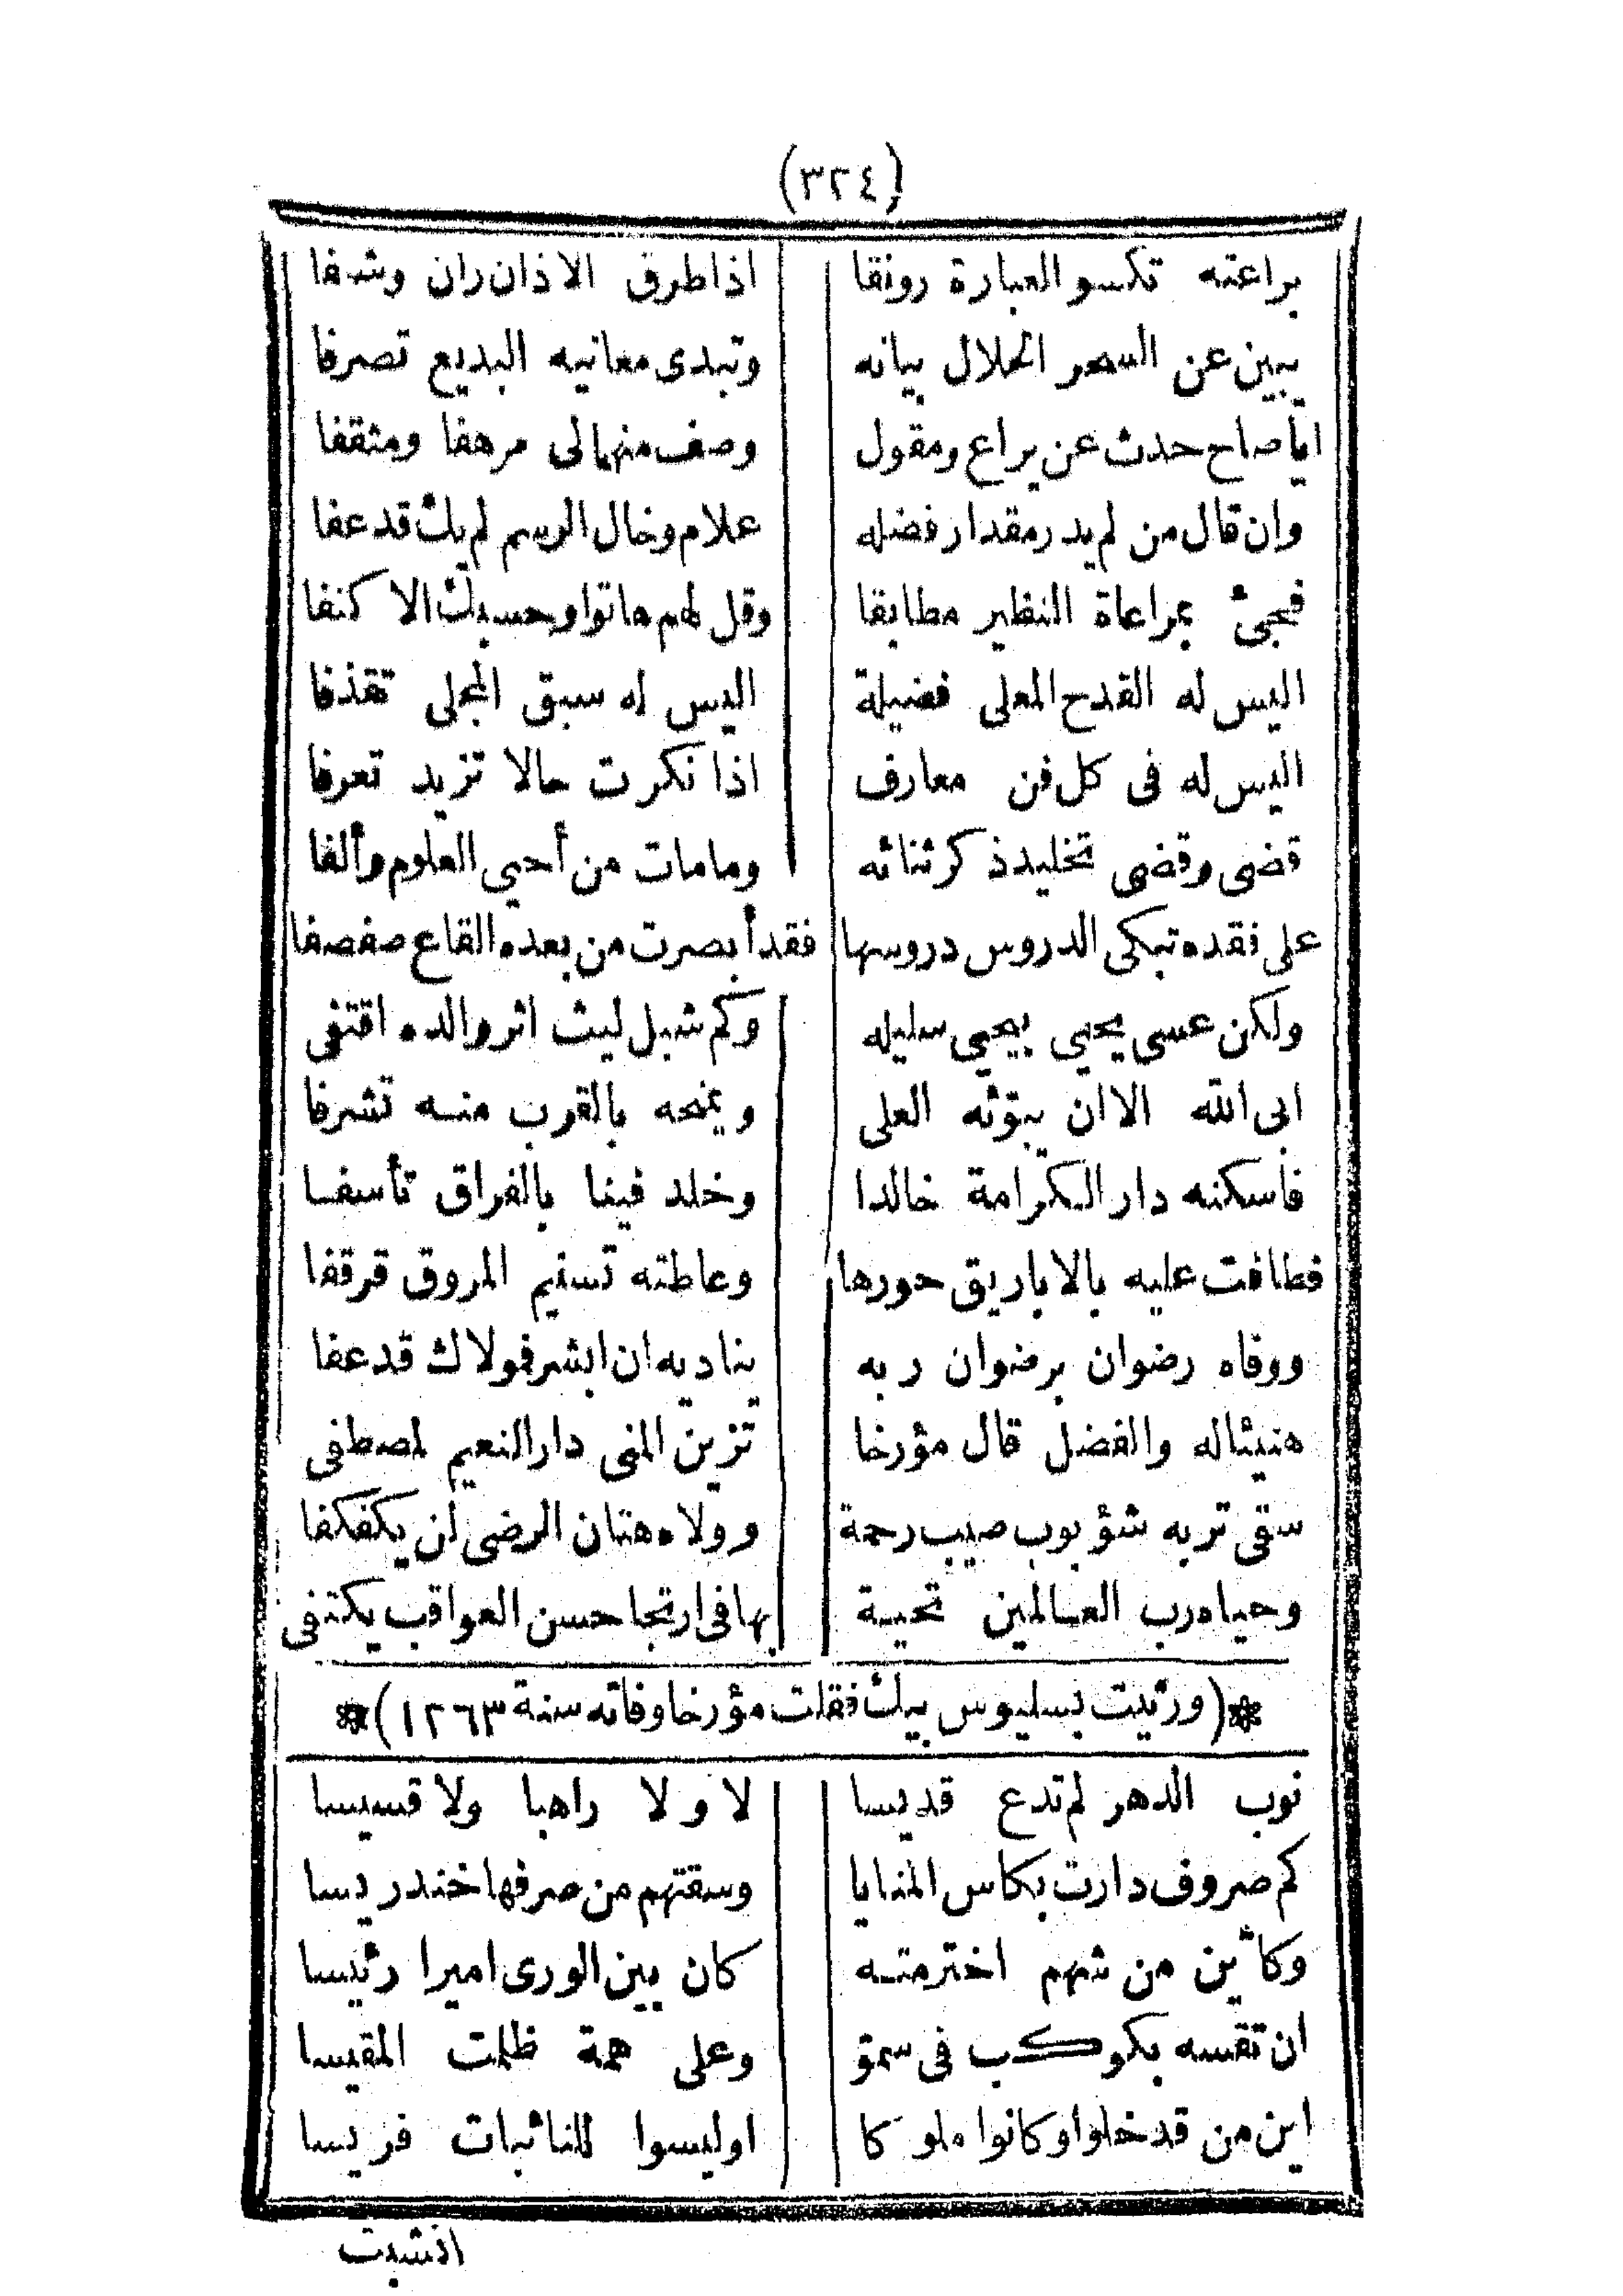 (٣٢٤)
براعته تكسو العبارة رونقا اذا طرق الاذان ران وشنفا
يبين عن السحر الحلال بيانه وتبدى معانيه البديع تصرفا
ايا صاح حدث عن يراع ومقول وصف منهما لى مرهفا ومثقفا
وان قال من لم يدر مقدار فضله علام وخال الرسم لم يك قد عفا
فجئ بمراعاة النظير مطابقا وقل لهم هاتوا وحسبك الاكنفا
اليس له القدح المعلى فضيلة اليس له سبق المجلى تقذفا
اليس له فى كل فن معارف اذا نكرت حالا تزيد تعرفا
قضى وقضى تخليد ذكر ثنائه وما مات من أحيى العلوم وألفا
على فقده تبكى الدروس دروسها فقد أبصرت من بعده القاع صفصفا
ولكن عسى يحيى بيحيى سليله وكم شبل ليث اثر والده اقتفى
ابى الله الا ان يبوّئه العلى ويمنحه بالقرب منه تشرفا
فأسكنه دار الكرامة خالدا وخلد فينا بالفراق تأسفا
فطافت عليه بالاباريق حورها وعاطته تسنيم المروق قرقفا
ووفاه رضوان برضوان ربه يناديه ان ابشر فمولاك قد عفا
هنيئا له والفضل قال مؤرخا تزين المنى دار النعيم لمصطفى
سقى تربه شؤبوب صيب رحمة وولاه هتان الرضى لن يكفكفا
وحياه رب العالمين تحية بها فى ارتجا حسن العواقب يكتفى
*(ورثيت بسليوس بيك فقلت مؤرخا وفاته سنة ١٢٦٣)*
نوب الدهر لم تدع قديسا لا ولا راهبا ولا قسيسا
كم صروف دارت بكاس المنايا وسقتهم من صرفها خندريسا
وكأين من شهم اخترمته كان بين الورى اميرا رئيسا
ان تقسه بكوكب فى سموّ وعلى همة ظلمت المقيسا
اين من قد خلوا وكانوا ملوكا اوليسوا للنائبات فريسا
انشبت